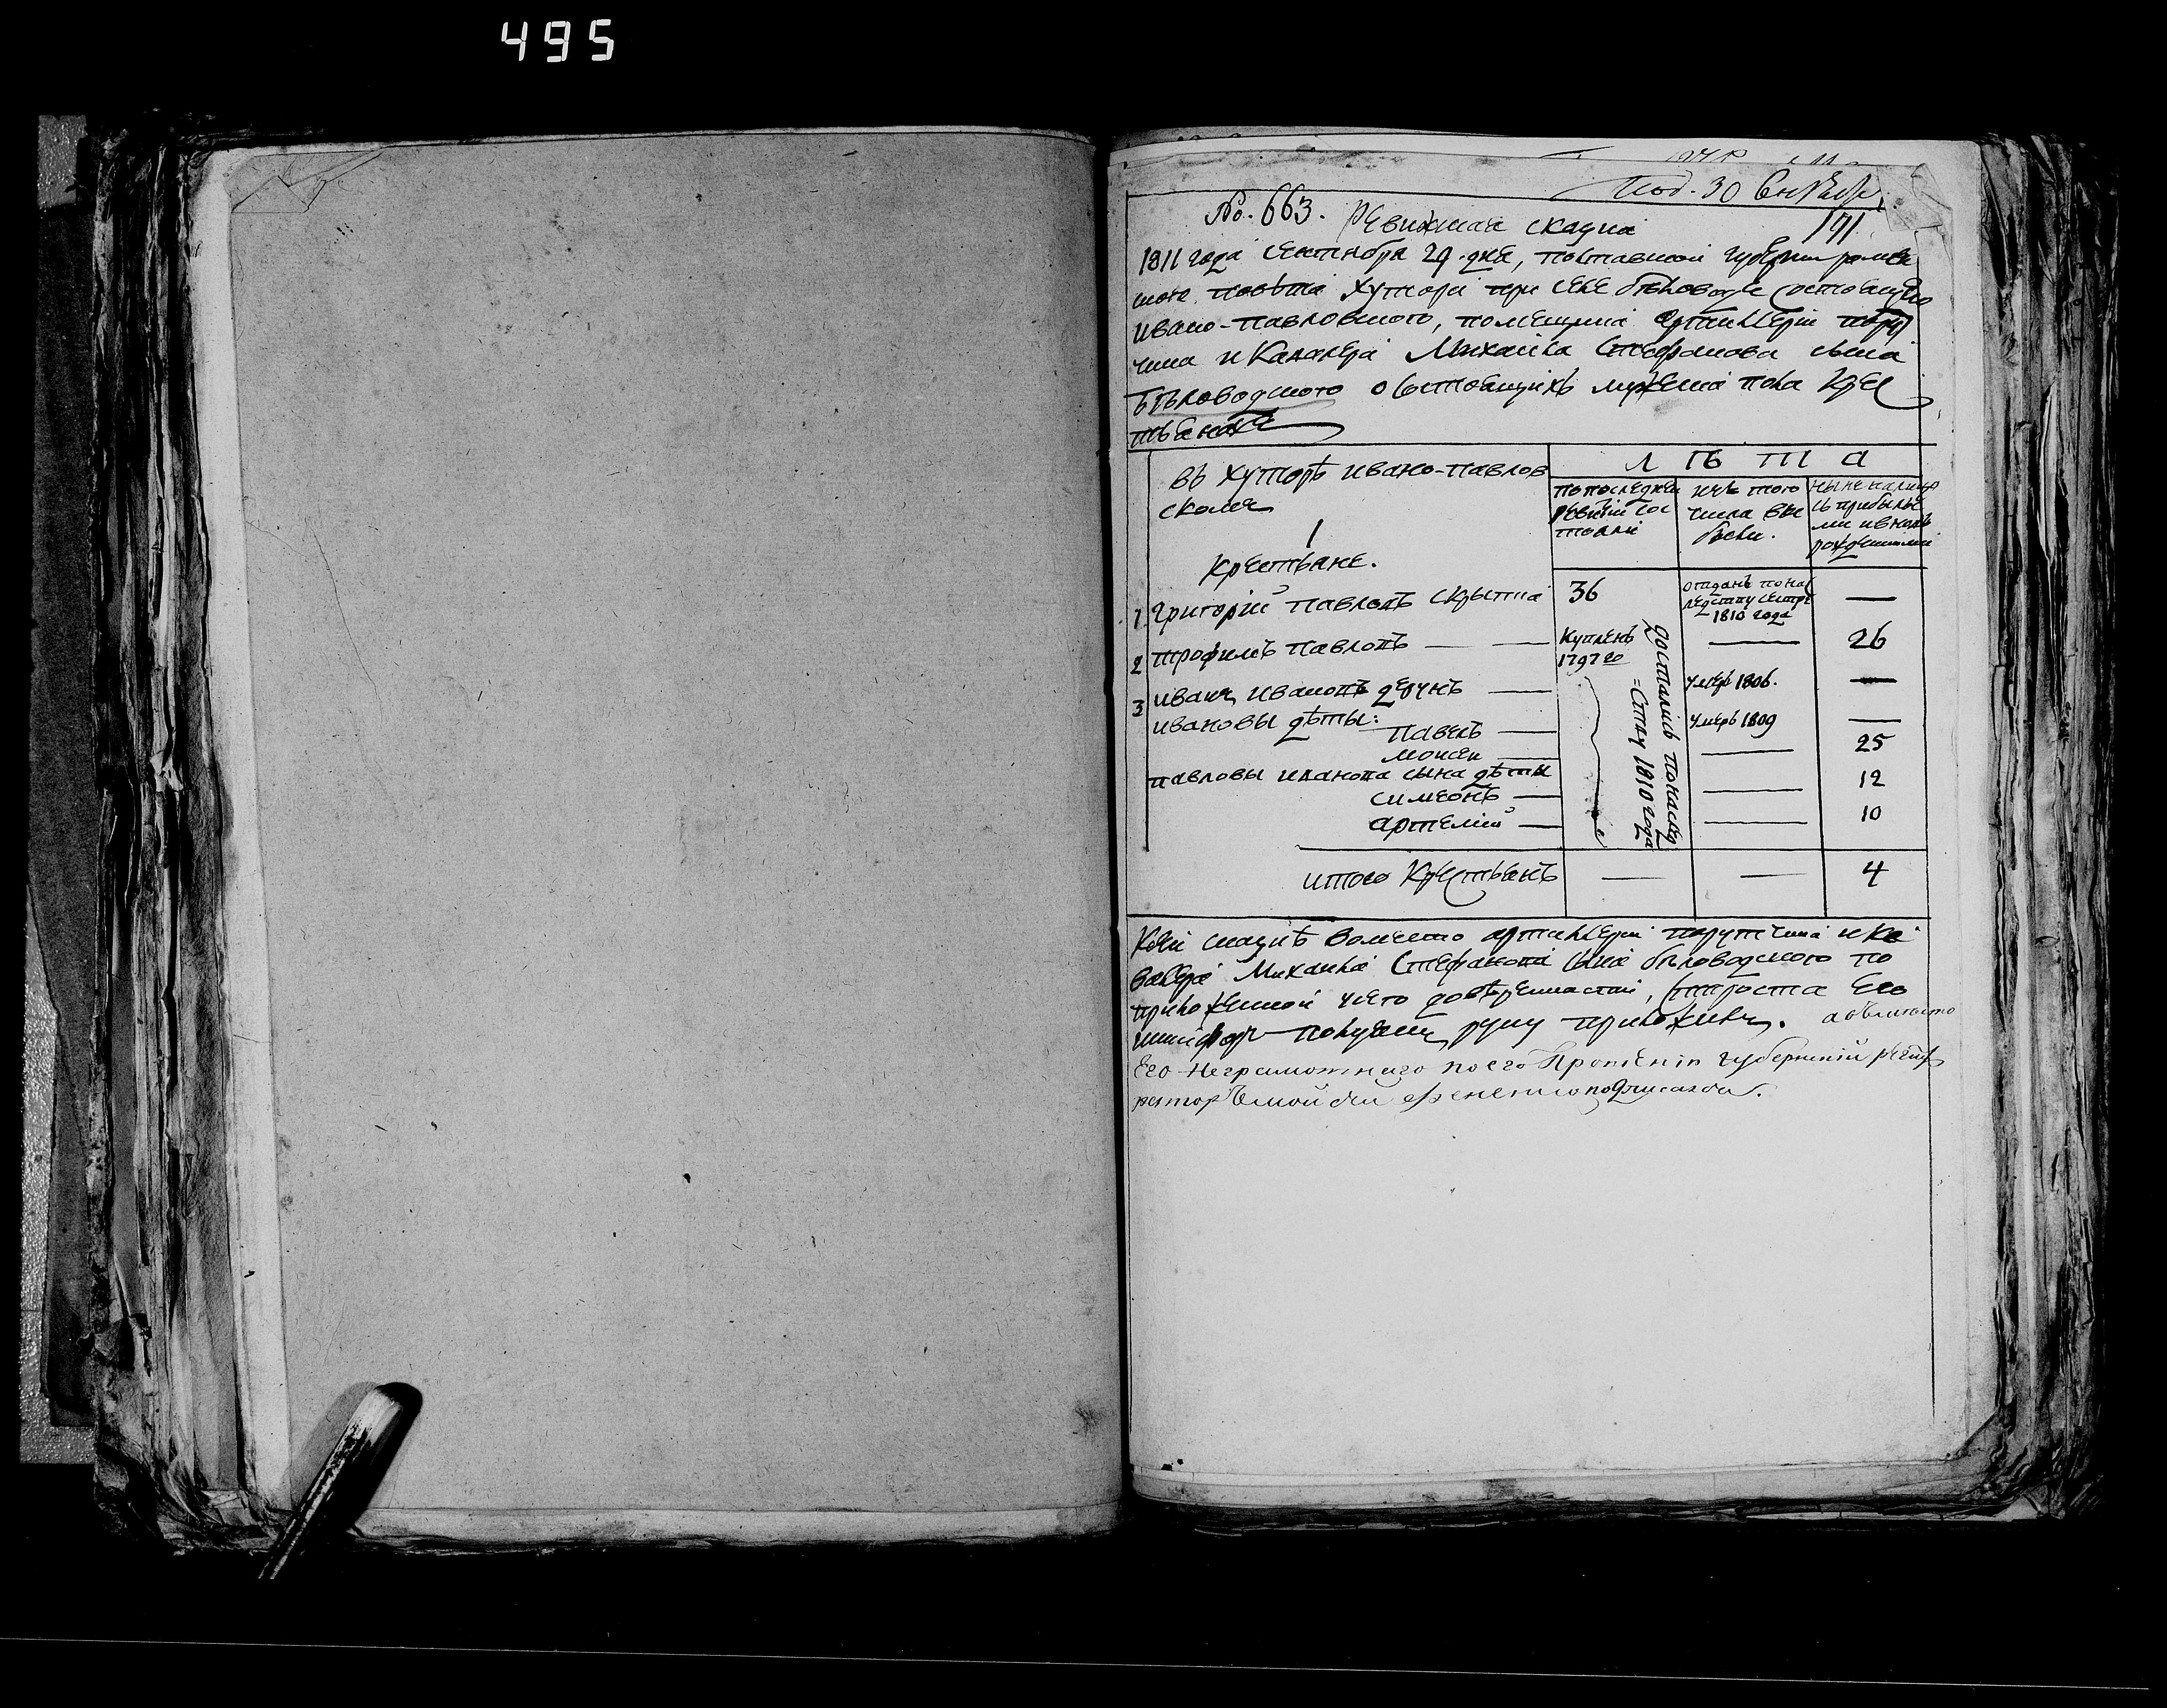 495
Под. 30 Сентября
No. 663. Ревижская скаска
191
1811 года сентября 29. дня, полтавской губернии ромен
ского повета хутора при селе беловодѣ состоящаго
ивано-павловского, помещика артиллерїи пору
чика и Кавалера Михаила Стефанова сына
Бѣловодского о состоящихъ мужеска пола крес
тьянахъ
въ хуторѣ ивано-павлов
скомъ
1
крестьяне.
Л ѣ т а
по последней
ревизїи сос
тояли
изъ того
числа вы
было.
ныне налицо
съ прибылы
ми и вновь
рожденными
1 григорїй павловъ скрыпка 36 отданъ по нас
ледству сестрѣ
1810 года —
2 трофимъ павловъ — — Купленъ
1797 го — 26
3 иванъ ивановъ — умеръ 1806. —
ивановы дѣты:
павелъ — умеръ 1809 —
моисей — — 25
павловы иванова сына дѣты
симеонъ — — 12
артемїй — — 10
достались по наслед
=ству 1810 года
итого Крестьянъ — — 4
К сей скаскѣ вместо артиллерїи порутчика и ка
валера Михаила Стефанова сына бѣловодского по
приложенной у сего довѣренности, староста Его
руку приложилъ. а вместо
Его неграмотнаго по его прошенїю губернскїй регист
раторъ подписался.